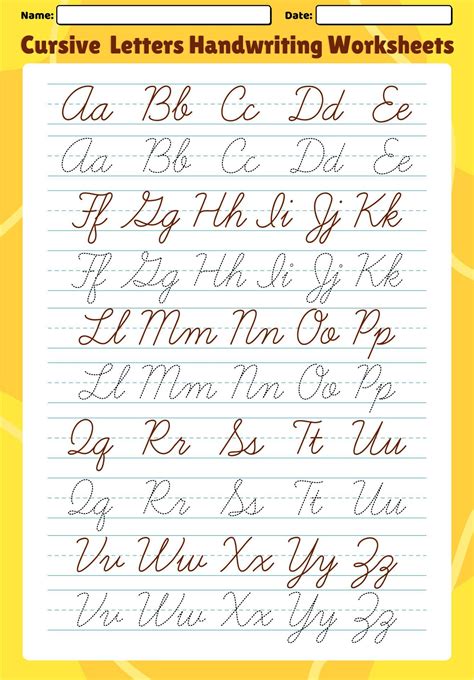 Name: Date:
Cursive Letters Handwriting Worksheets
Aa Bb Cc Dd Ee
Aa Bb Cc Dd Ee
Ff Gg Hh Ii Jj Kk
Ff Gg Hh Ii Jj Kk
Ll Mm Nn Oo Pp
Ll Mm Nn Oo Pp
Qq Rr Ss Tt Uu
Qq Rr Ss Tt Uu
Vv Ww Xx Yy Zz
Vv Ww Xx Yy Zz